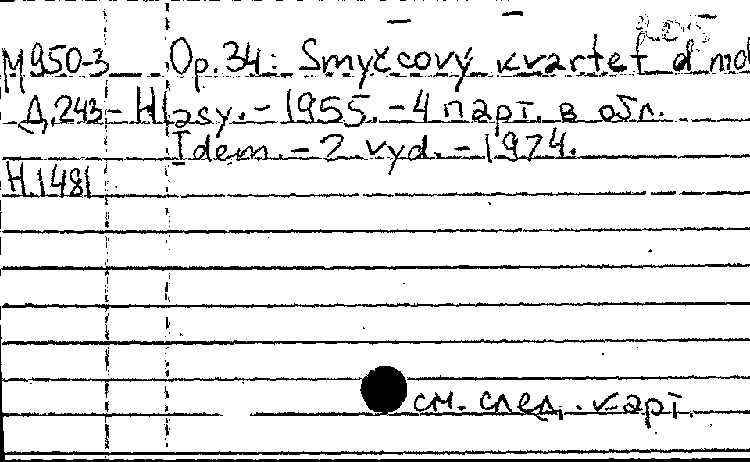 205
М950-3 Op. 34: Smyčcový kvartet d mol
Д.243 - Hlasy. - 1955. - 4 парт. в обл.
Idem. - 2 vyd. - 1974.
Н.1481
см. след. карт.